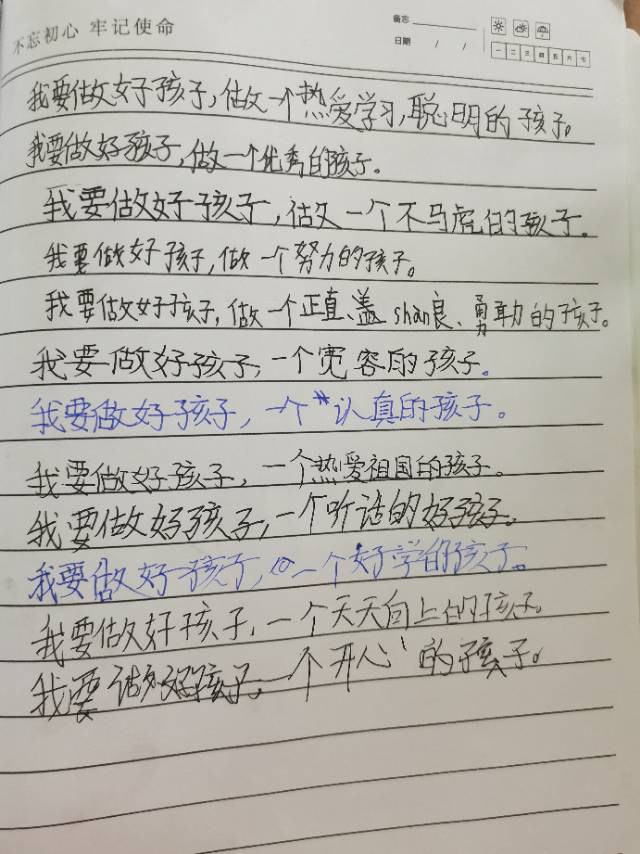 不忘初心 牢记使命
备忘
日期 / /
一 二 三 四 五 六 七
我要做好孩子,做一个热爱学习,聪明的孩子。
我要做好孩子,做一个优秀的孩子。
我要做好孩子,做一个不马虎的孩子。
我要做好孩子,做一个努力的孩子。
我要做好孩子,做一个正直、盖shan良、勇敢力的孩子。
我要做好孩子,一个宽容的孩子。
我要做好孩子,一个认真的孩子。
我要做好孩子,一个热爱祖国的孩子。
我要做好孩子,一个听话的好孩子。
我要做好孩子,一个好学的孩子。
我要做好孩子,一个天天向上的孩子。
我要做好孩子,一个开心的孩子。